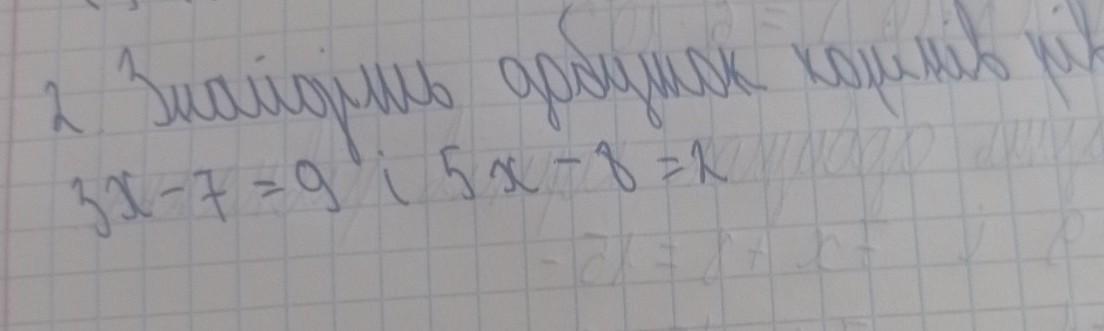 2 Знайдіть добуток коренів рів
3x - 7 = 9 і 5x - 8 = 2